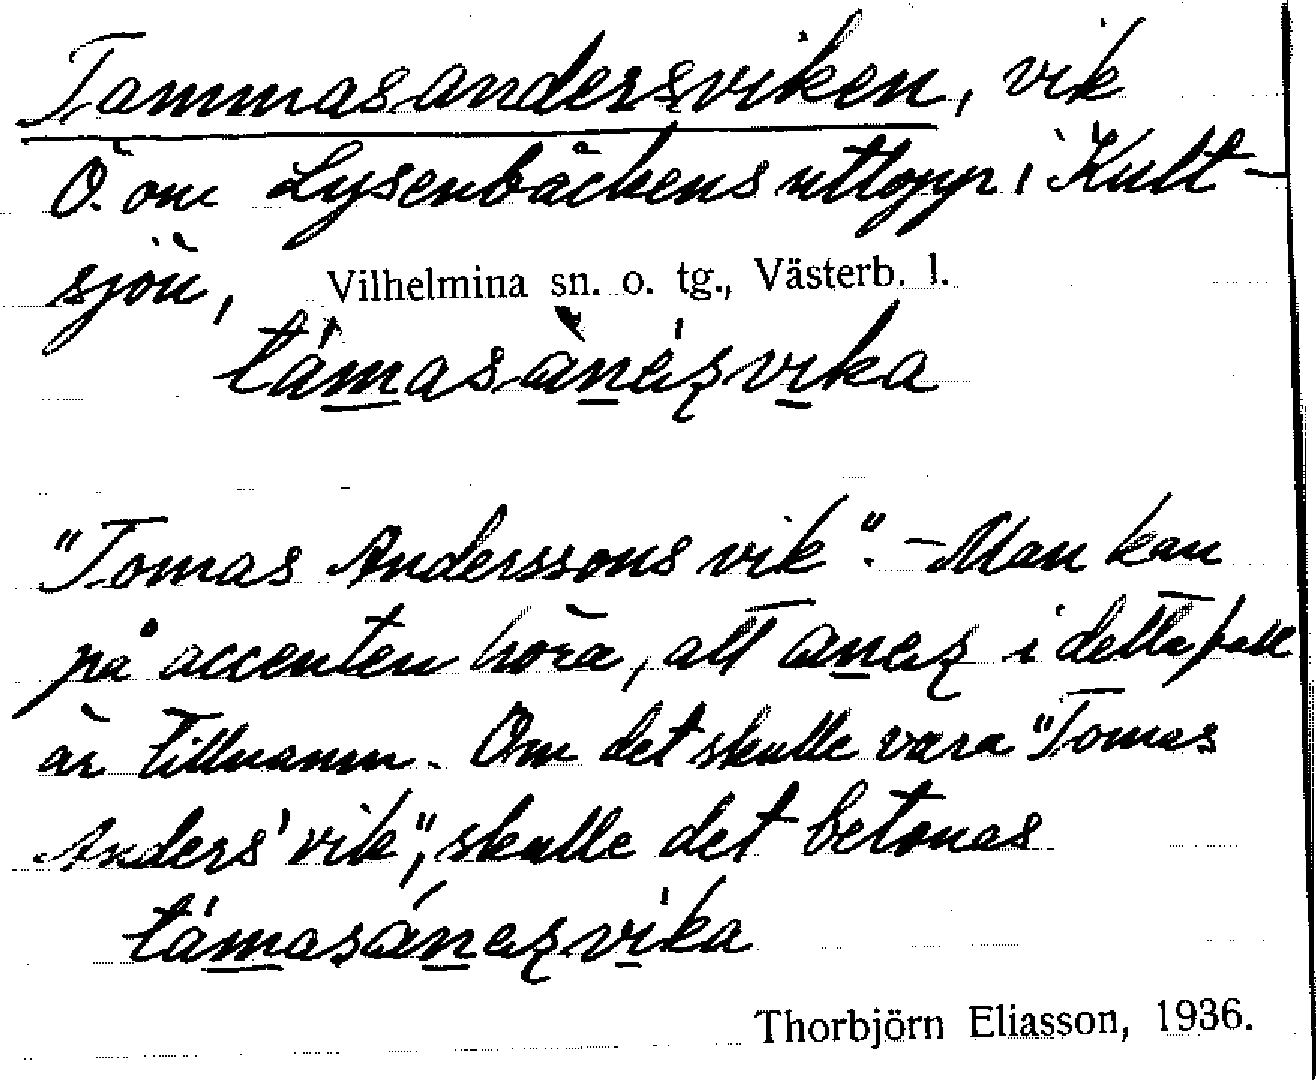 Tammasandersviken, vik
Ö. om Lysenbäckens utlopp i Kult-
sjön, Vilhelmina sn. o. tg., Västerb. l.
támasànéʂvika
"Tomas Anderssons vik". – Man kan
på accenten höra, att aneʂ i detta fall
är tillnamn. Om det skulle vara "Tomas
Anders' vik", skulle det betonas
támasáneʂvika
Thorbjörn Eliasson, 1936.